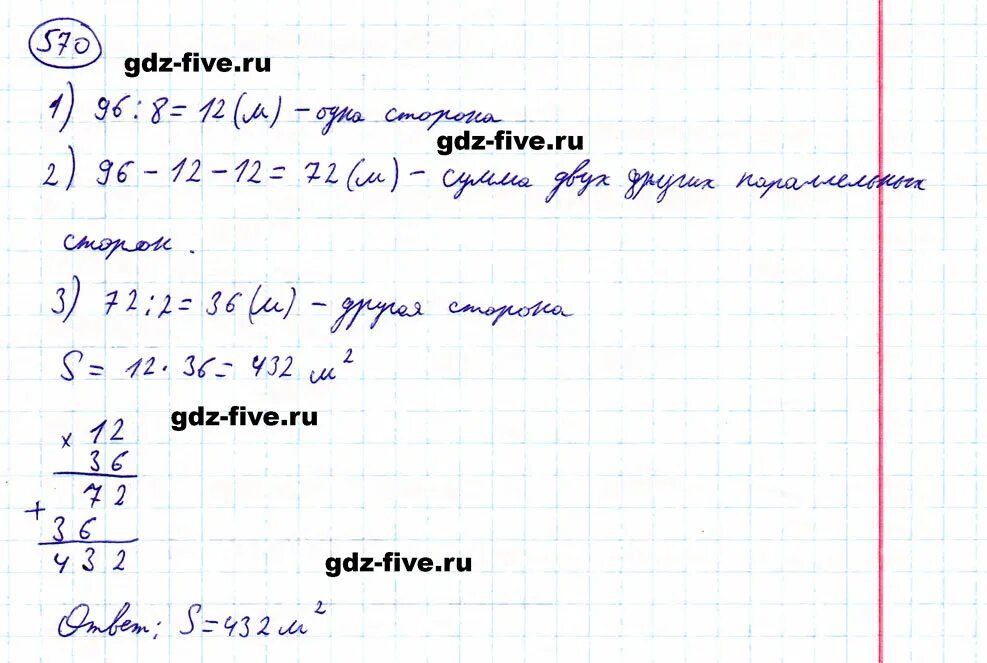 570
gdz-five.ru
1) 96 : 8 = 12 (м) - одна сторона
gdz-five.ru
2) 96 - 12 - 12 = 72 (м) - сумма двух других параллельных
сторон.
3) 72 : 2 = 36 (м) - другая сторона
S = 12 · 36 = 432 м²
gdz-five.ru
× 12
36
72
+
36
432
gdz-five.ru
Ответ: S = 432 м²